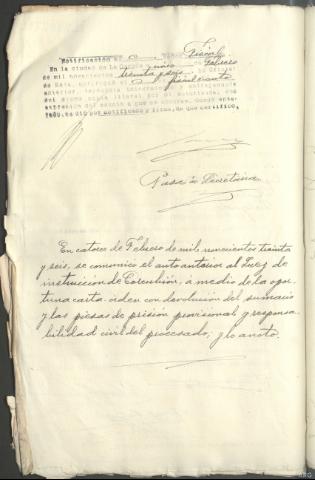 Notificación al Fiscal
En la ciudad de La Coruña y cinco de Febrero
de mil novecientos treinta y seis, yo Oficial
de Sala, notifiqué el
anterior, leyéndole íntegramente y entregándole
en el mismo acto copia literal por mí autorizada, con
expresión del asunto a que se refiere. Quedó ente-
rado, se dió por notificado y firma, de que certifico.
Pasa a Secretaria
En catorce de Febrero de mil novecientos treinta
y seis, se comunicó el auto anterior al Juez de
instrucción de Corcubión, a medio de la opor-
tuna carta-orden con devolución del sumario
y las piezas de prisión provisional y responsa-
bilidad civil del procesado; y lo anoto.